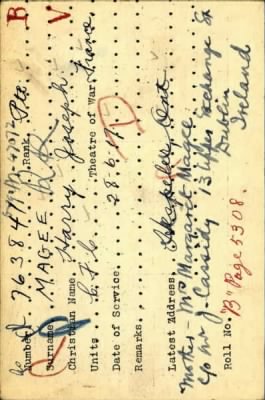 B V
Number 763847 Rank Pte.
Surname MAGEE
Christian Name Harry Joseph
Units C.F.C. Theatre of War France
Date of Service 28-6-17
Remarks
Latest Address, Ont
Mother - Mrs Margaret Magee
c/o Mr J. Cassidy 13 Upper Exchange St
Dublin
Ireland
Roll No. "B" Page 5308.